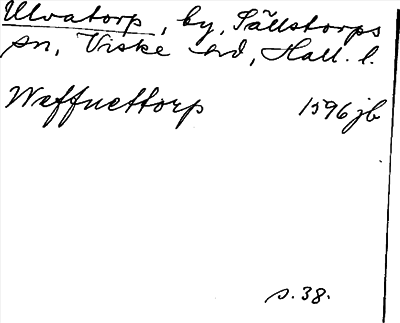 Ulvatorp, by, Sällstorps
sn, Viske hd, Hall. l.
Wæffuettorp 1596 jb
s. 38.